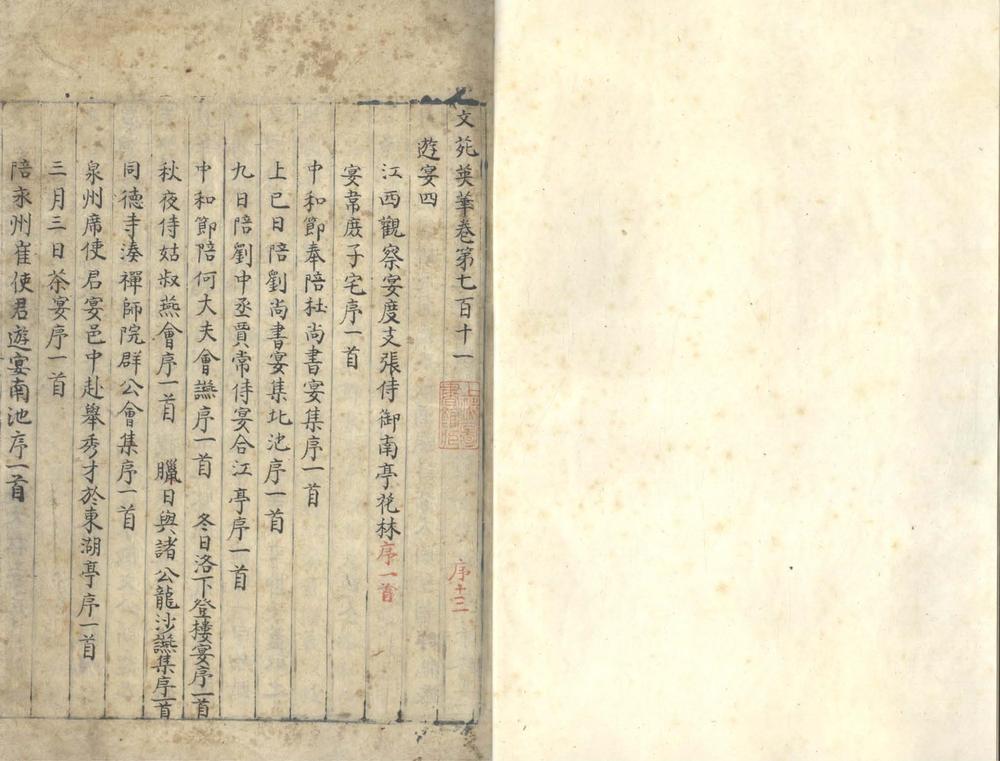 文苑英華卷第七百十一
序十三
遊宴四
江西觀察宴度支張侍御南亭花林序一首
宴韋庶子宅序一首
中和節奉陪杜尚書宴集序一首
上巳日陪劉尚書宴集北池序一首
九日陪劉中丞賈常侍宴合江亭序一首
中和節陪何大夫會讌序一首 冬日洛下登樓宴序一首
秋夜侍姑叔燕會序一首 臘日與諸公龍沙讌集序一首
同德寺湊禪師院群公會集序一首
泉州席使君宴邑中赴舉秀才於東湖亭序一首
三月三日茶宴序一首
陪永州崔使君遊宴南池序一首